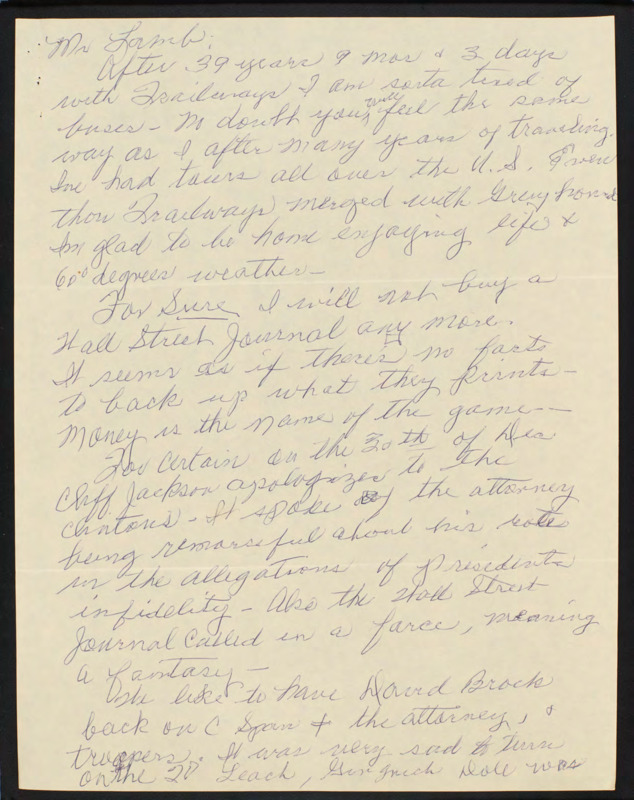 Mr Lamb:
After 39 years 9 mos & 3 days
with Trailways I am sorta tired of
buses - No doubth you, feel the same
way as I after many years of traveling.
Ive had tours all over the U.S. Even
thou Trailways merged with Greyhound
Im glad to be home enjoying life &
60° degrees weather -
For Sure I will not buy a
Wall Street Journal any more.
It seems as if there's no facts
to back up what they prints -
Money is the name of the game --
For certain on the 30th of Dec
Cliff Jackson apologizes to the
Clintons - It spoke of the attorney
being remorceful about his role
in the allegations of Presidents
infidelity - Also the Wall Street
Journal called in a farce, meaning
a fantasy -
like to have David Brock
back on C Span & the attorney, &
troopers. It was very sad to turn
on the Leach, Gingrich Dole was